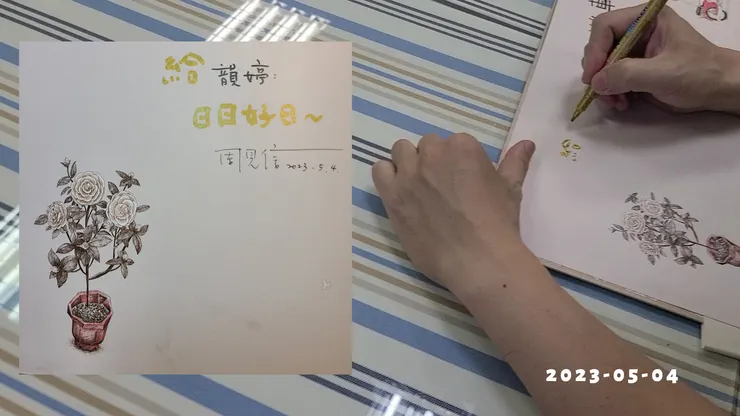 給 韻婷：
日日好日～
周見信 2023.5.4.
2023-05-04